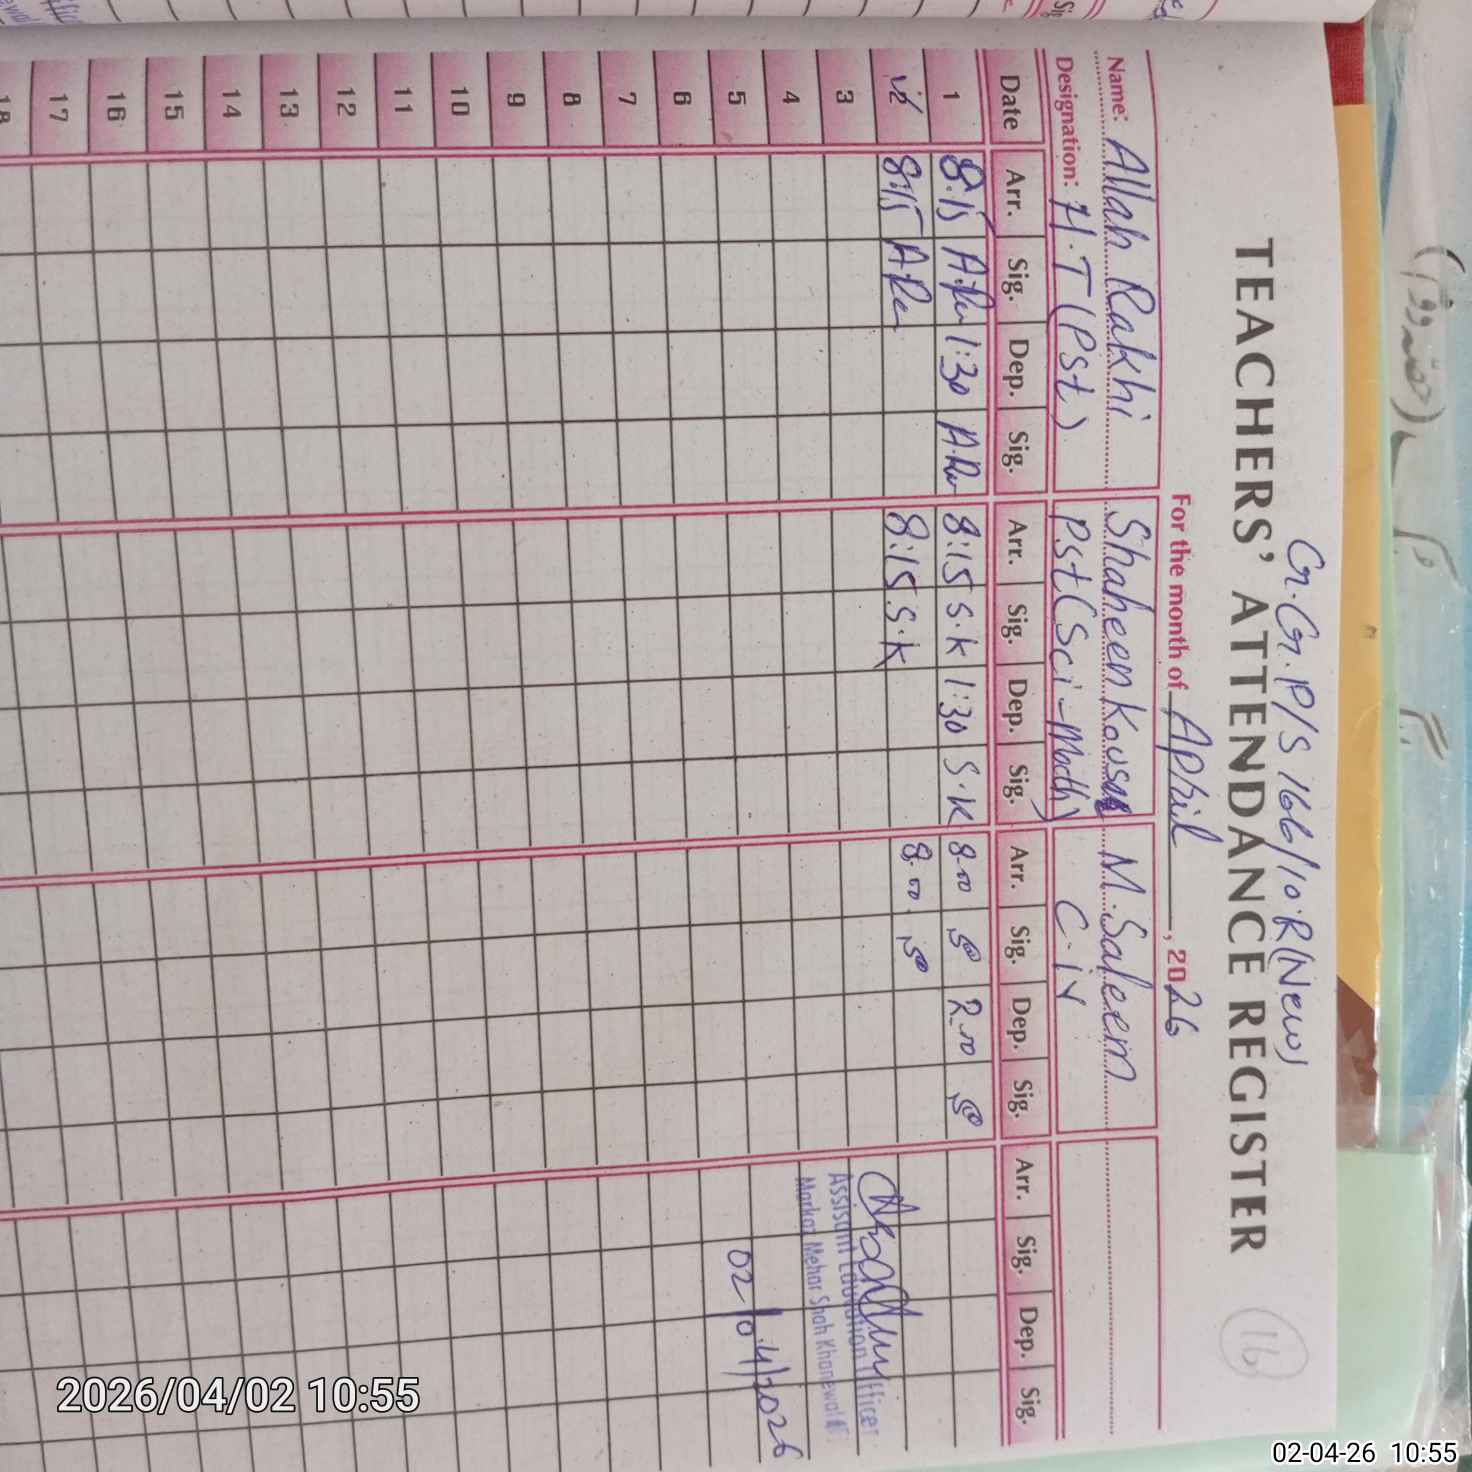 G.G.P/S 166/10.R(New)
TEACHERS' ATTENDANCE REGISTER
16
For the month of April, 2026
Name: Allah Rakhi Shaheen Kousar M. Saleem
Designation: H.T (Pst) Pst (Sci-Math) C.iv
Date Arr. Sig. Dep. Sig. Arr. Sig. Dep. Sig. Arr. Sig. Dep. Sig. Arr. Sig. Dep. Sig.
1 8:15 1:30 8:15 S.K 1:30 S.K 8.00 2.00
2 8:15 8:15 S.K 8.00
3
4
5
6
7
8
9
10
11
12
13
14
15
16
17
18
Assistant Education Officer
Markaz Mehar Shah Khanewal
02/04/2026
2026/04/02 10:55
02-04-26 10:55